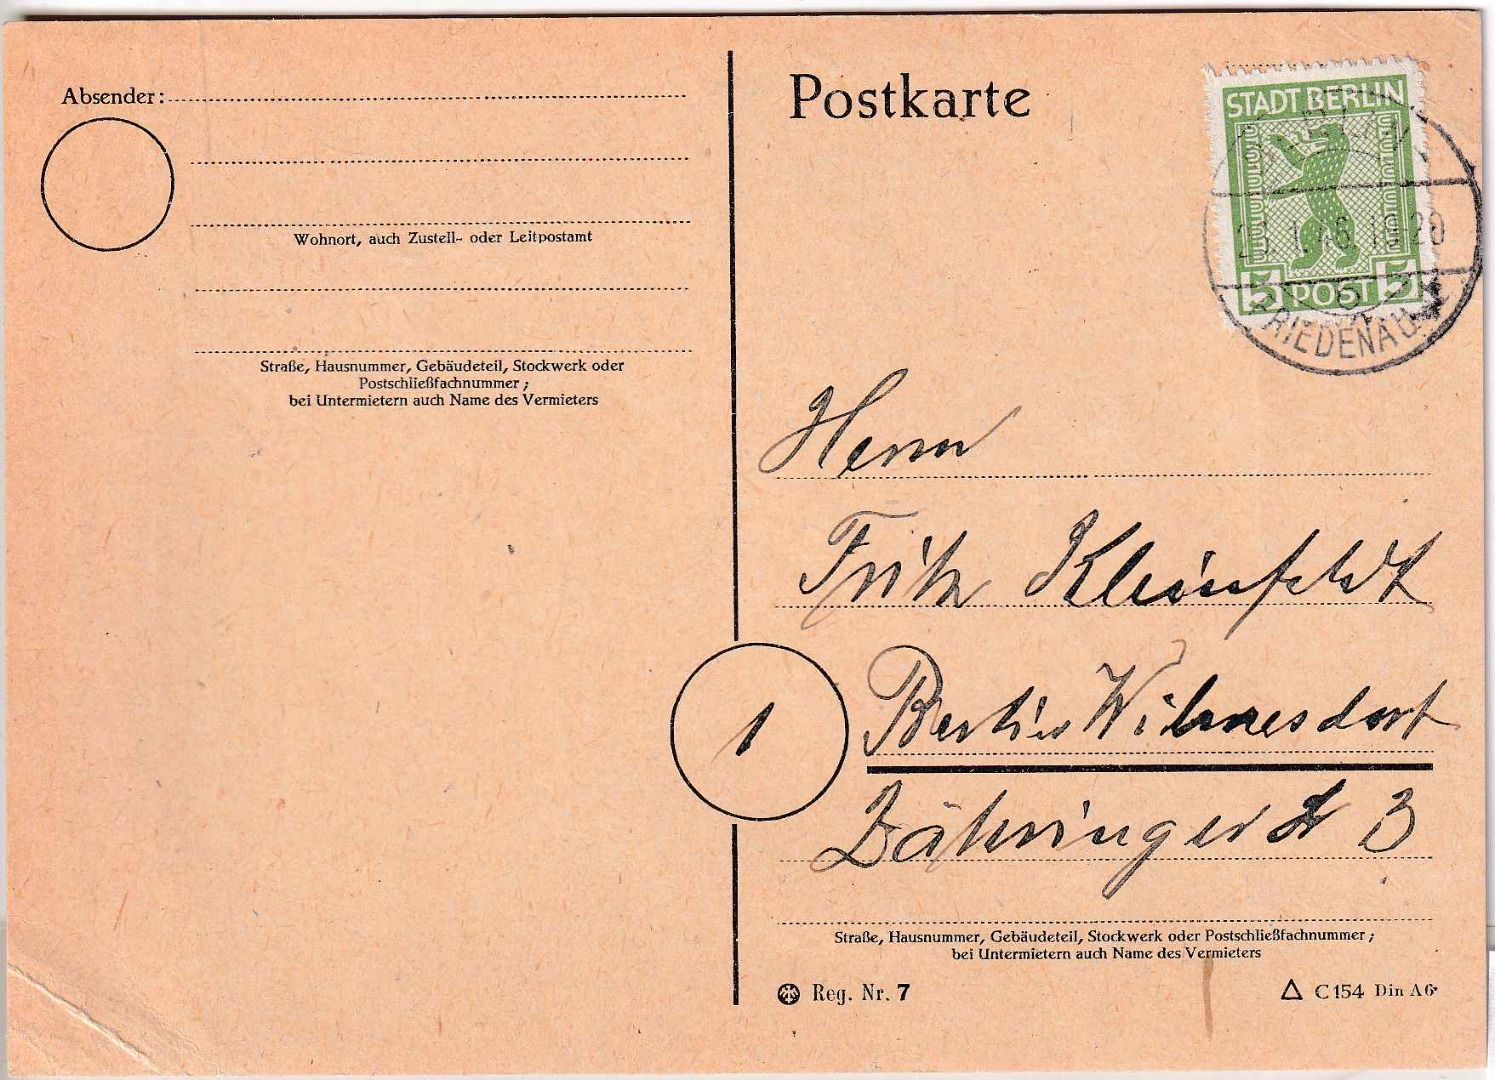 Absender:
Wohnort, auch Zustell- oder Leitpostamt
Straße, Hausnummer, Gebäudeteil, Stockwerk oder
Postschließfachnummer;
bei Untermietern auch Name des Vermieters
Postkarte
STADT BERLIN
5 POST 5
FRIEDENAU
Herrn
Fritz Kleinfeldt
1
Berlin Wilmersdorf
Zähringer Str 3
Straße, Hausnummer, Gebäudeteil, Stockwerk oder Postschließfachnummer;
bei Untermietern auch Name des Vermieters
Reg. Nr. 7
C 154 Din A6